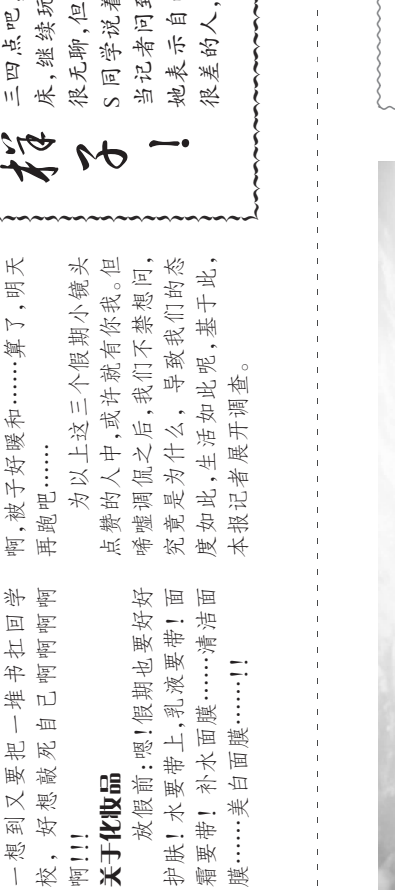 一想到又要把一堆书扛回学
校，好想敲死自己啊啊啊啊
啊!!!
关于化妆品
放假前:嗯!假期也要好好
护肤!水要带上,乳液要带!面
霜要带!补水面膜……清洁面
膜……美白面膜……!!
啊,被子好暖和……算了,明天
再跑吧……
为以上这三个假期小镜头
点赞的人中,或许就有你我。但
唏嘘调侃之后,我们不禁想问,
究竟是为什么，导致我们的态
度如此,生活如此呢,基于此,
本报记者展开调查。
样子!
三四点吧
床,继续玩
很无聊,但
S同学说着
当记者问到
她表示自
很差的人,